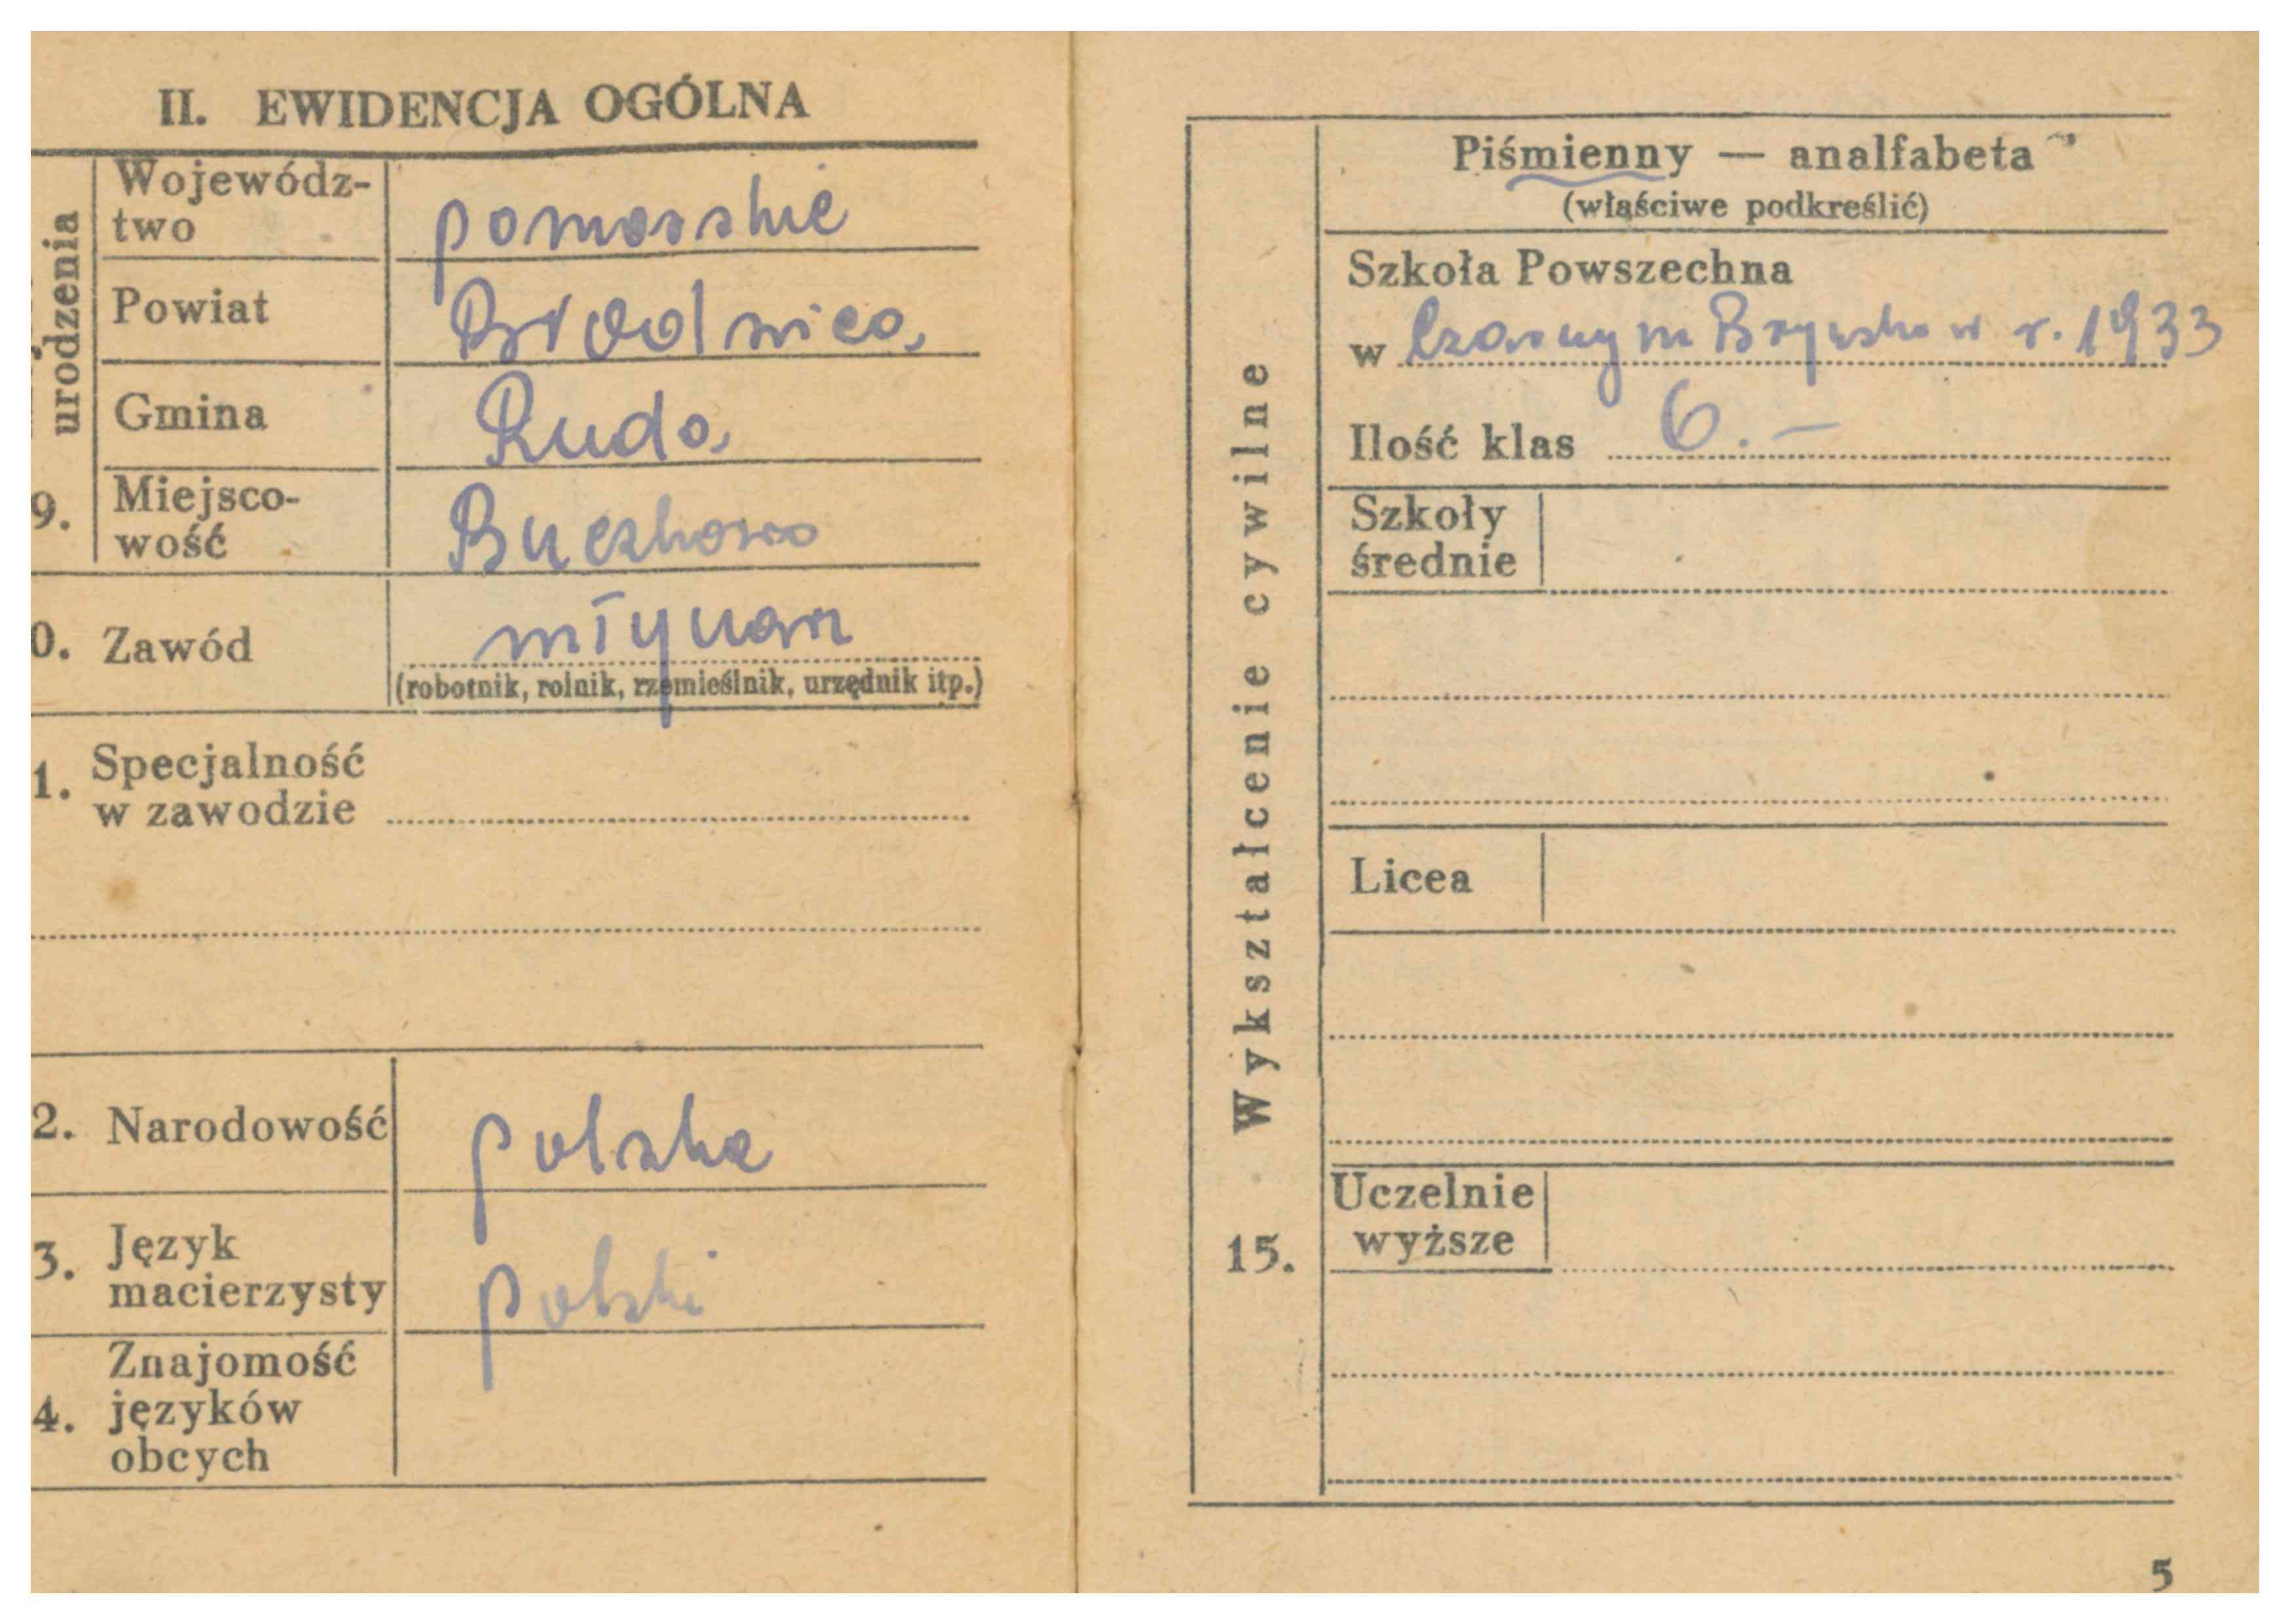 II. EWIDENCJA OGÓLNA
urodzenia
Wojewódz-
two
pomorskie
Powiat
Brodnica
Gmina
Ruda
9.
Miejsco-
wość
Buczkowo
0. Zawód
młynarz
(robotnik, rolnik, rzemieślnik, urzędnik itp.)
1. Specjalność
w zawodzie
2. Narodowość
polska
3. Język
macierzysty
polski
4. Znajomość
języków
obcych
15. Wykształcenie cywilne
Piśmienny — analfabeta
(właściwe podkreślić)
Szkoła Powszechna
w Czarnym w r. 1933
Ilość klas 6.—
Szkoły
średnie
Licea
Uczelnie
wyższe
5